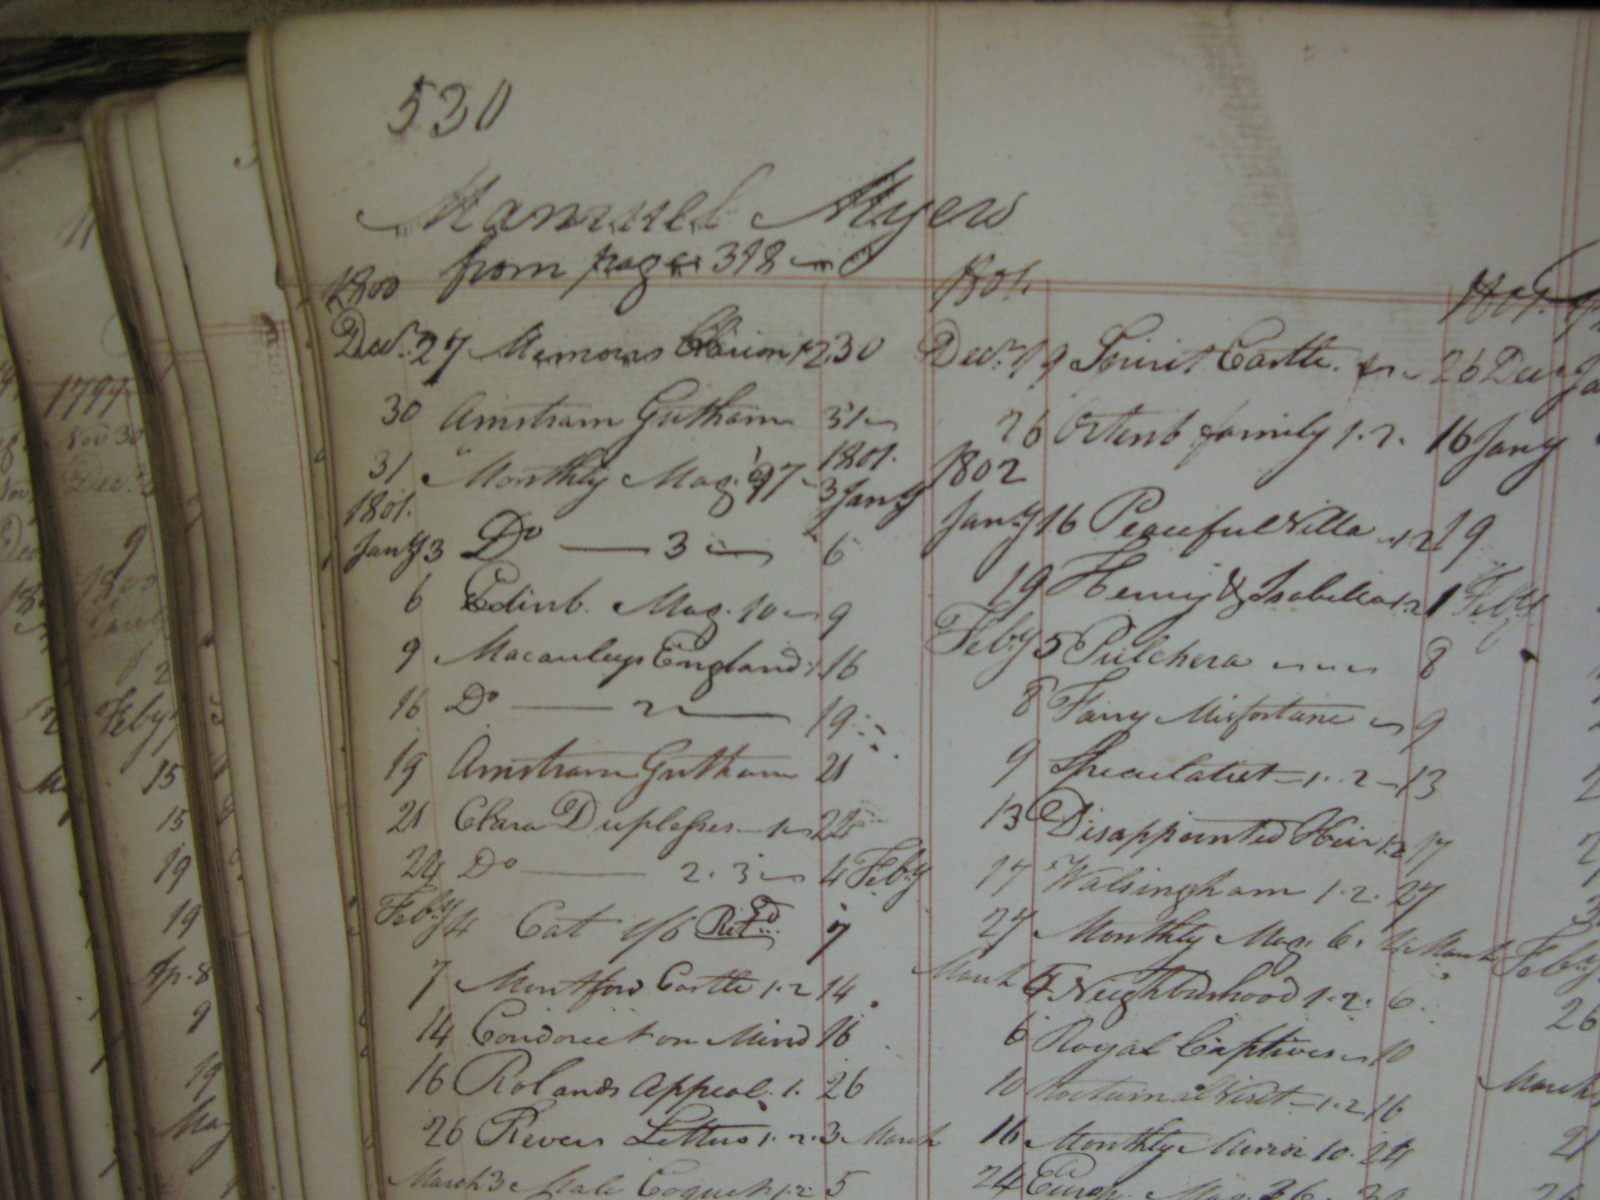 530
Mannuel Myers
from page 398
1800
Decr. 27 Memoirs Clarion 1.2 30
30 Amstram Gutham 31
31 Monthly Mag. 97 1801. 3 Jany
1801.
Jany 3 Do 3 6
6 Edinb. Mag. 10 9
9 Macauleys England 1 16
16 Do 2 19
19 Amstram Gutham 21
21 Clara Duplesses 1 24
24 Do 2.3 4 Feby
Feby 4 Cat 1/6 Retd 7
7 Montford Castle 1.2 14
14 Condorcet on Mind 16
16 Rolands Appeal. 1. 26
26 Revers Letters 1.2. 3 March
March 3 Male Coquet 1.2 5
1801.
Decr. 19 Spirit Castle. 26 Decr
26 Ortenb family 1.2. 16 Jany
1802
Jany 16 Peaceful Villa 1.2 19
19 Henry & Isabella 1.2 1 Feby
Feby 5 Pulchera 8
8 Fairy Misfortune 9
9 Speculatist 1.2 13
13 Disappointed Heir 1.2 17
17 Walsingham 1.2. 27
27 Monthly Mag. 6. 4 March
March 4 Neighbourhood 1.2. 6
6 Royal Captives 10
10 Nocturnal Visit 1.2 16
16 Monthly Mirror 10. 24
24 Europ. Mag. 36
1801.
Feby
26
March
21
1799
Nov 30
Decr.
9
1800
Jany
2
Feby
15
15
19
19
Ap. 8
9
19
May